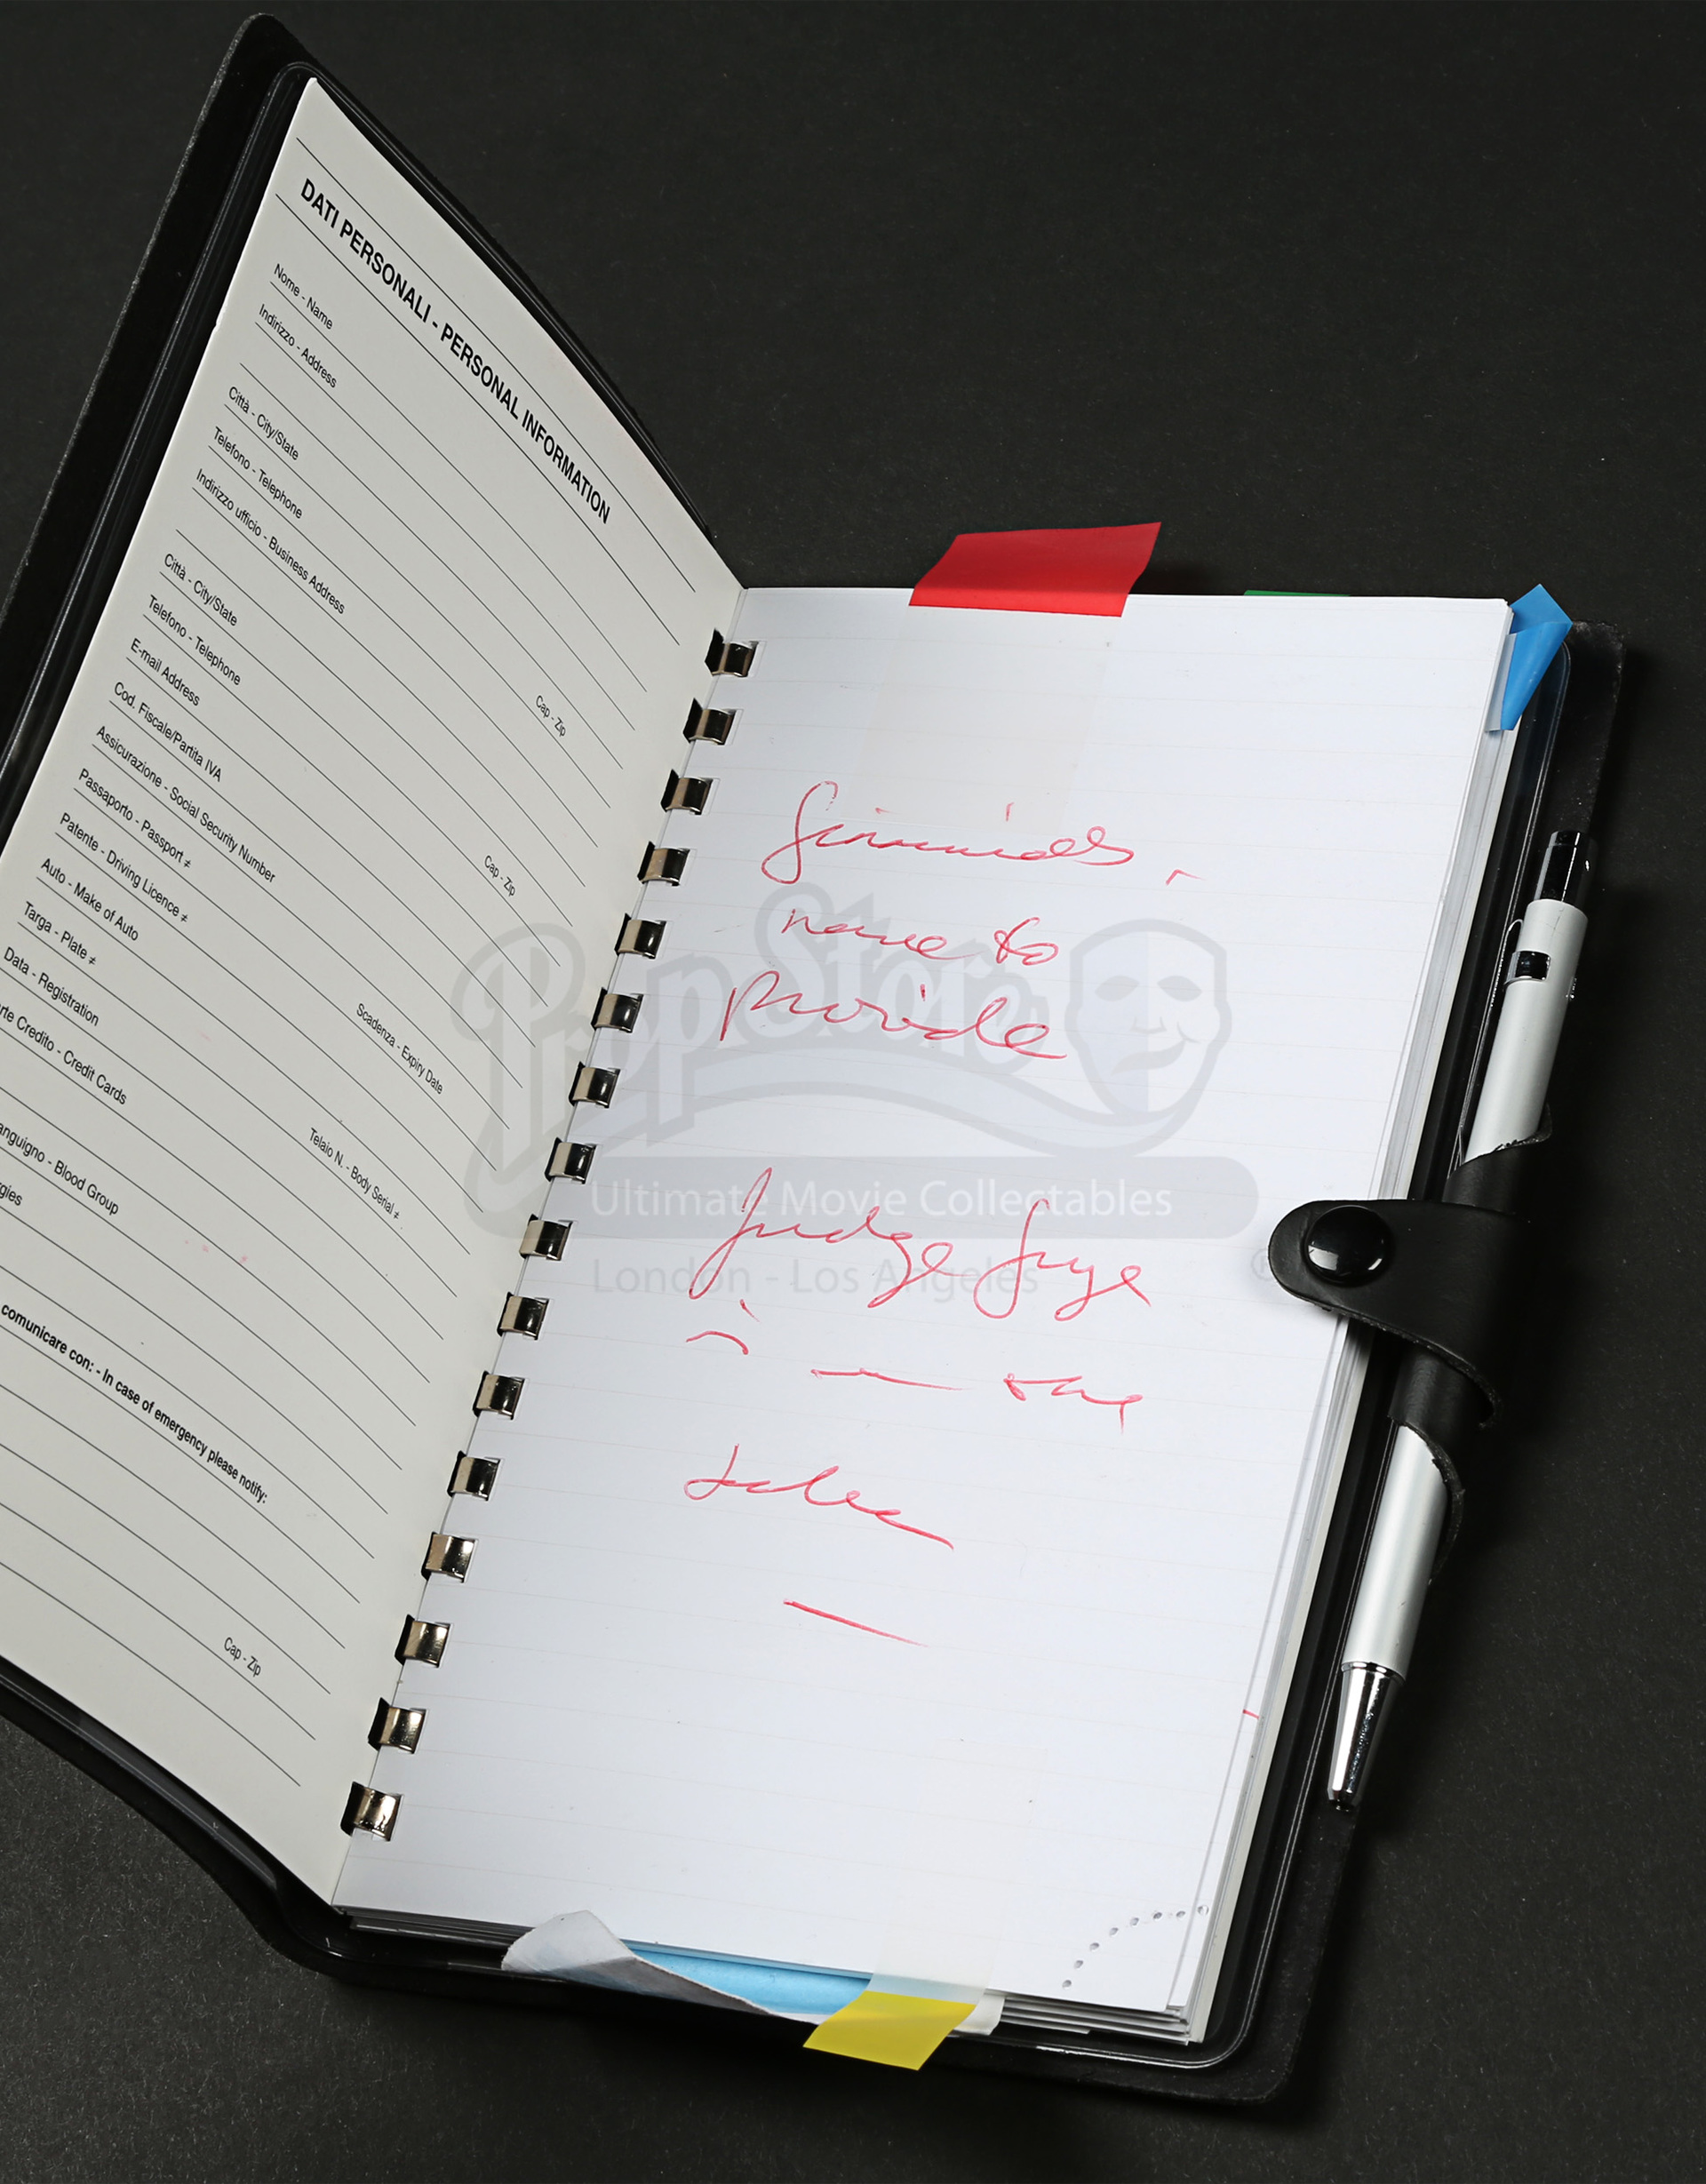 DATI PERSONALI - PERSONAL INFORMATION
Nome - Name
Indirizzo - Address
Città - City/State
Cap - Zip
Telefono - Telephone
Indirizzo ufficio - Business Address
Città - City/State
Cap - Zip
Telefono - Telephone
E-mail Address
Cod. Fiscale/Partita IVA
Assicurazione - Social Security Number
Passaporto - Passport ≠
Scadenza - Expiry Date
Patente - Driving Licence ≠
Auto - Make of Auto
Targa - Plate ≠
Telaio N. - Body Serial ≠
Data - Registration
rte Credito - Credit Cards
anguigno - Blood Group
rgies
comunicare con: - In case of emergency please notify:
Cap - Zip
name to
provide
Judge
PropStore
Ultimate Movie Collectables
London - Los Angeles